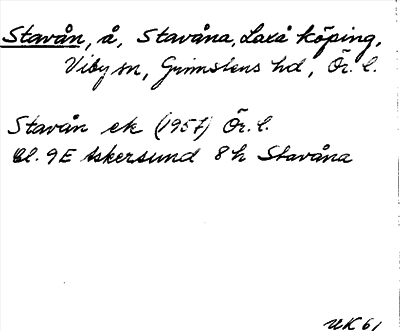 Stavån, å, Stavåna, Laxå köping,
Viby sn, Grimstens hd, Ör. l.
Stavån ek (1957) Ör. l.
Bl. 9E Askersund 8h Stavåna
UK 61